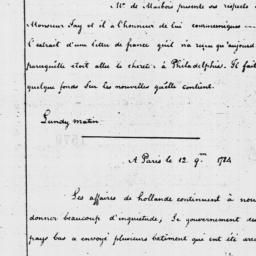 Mr. de Marbois presente ses respects
Monsieur Jay et il a l'honneur de lui communiquer
l'extrait d'une lettre de france qu'il n'a reçue qu'aujourd
parcequ'elle etoit allee le cherch. à Philadelphie. Il fait
quelque fonds sur les nouvelles qu'elle contient.
Lundy matin
A Paris le 12. 9re 1784
Les affaires de hollande continuent à nou
donner beaucoup d'inquietude, Le gouvernement
pays bas a envoyé plusieurs batiment qui ont été arre